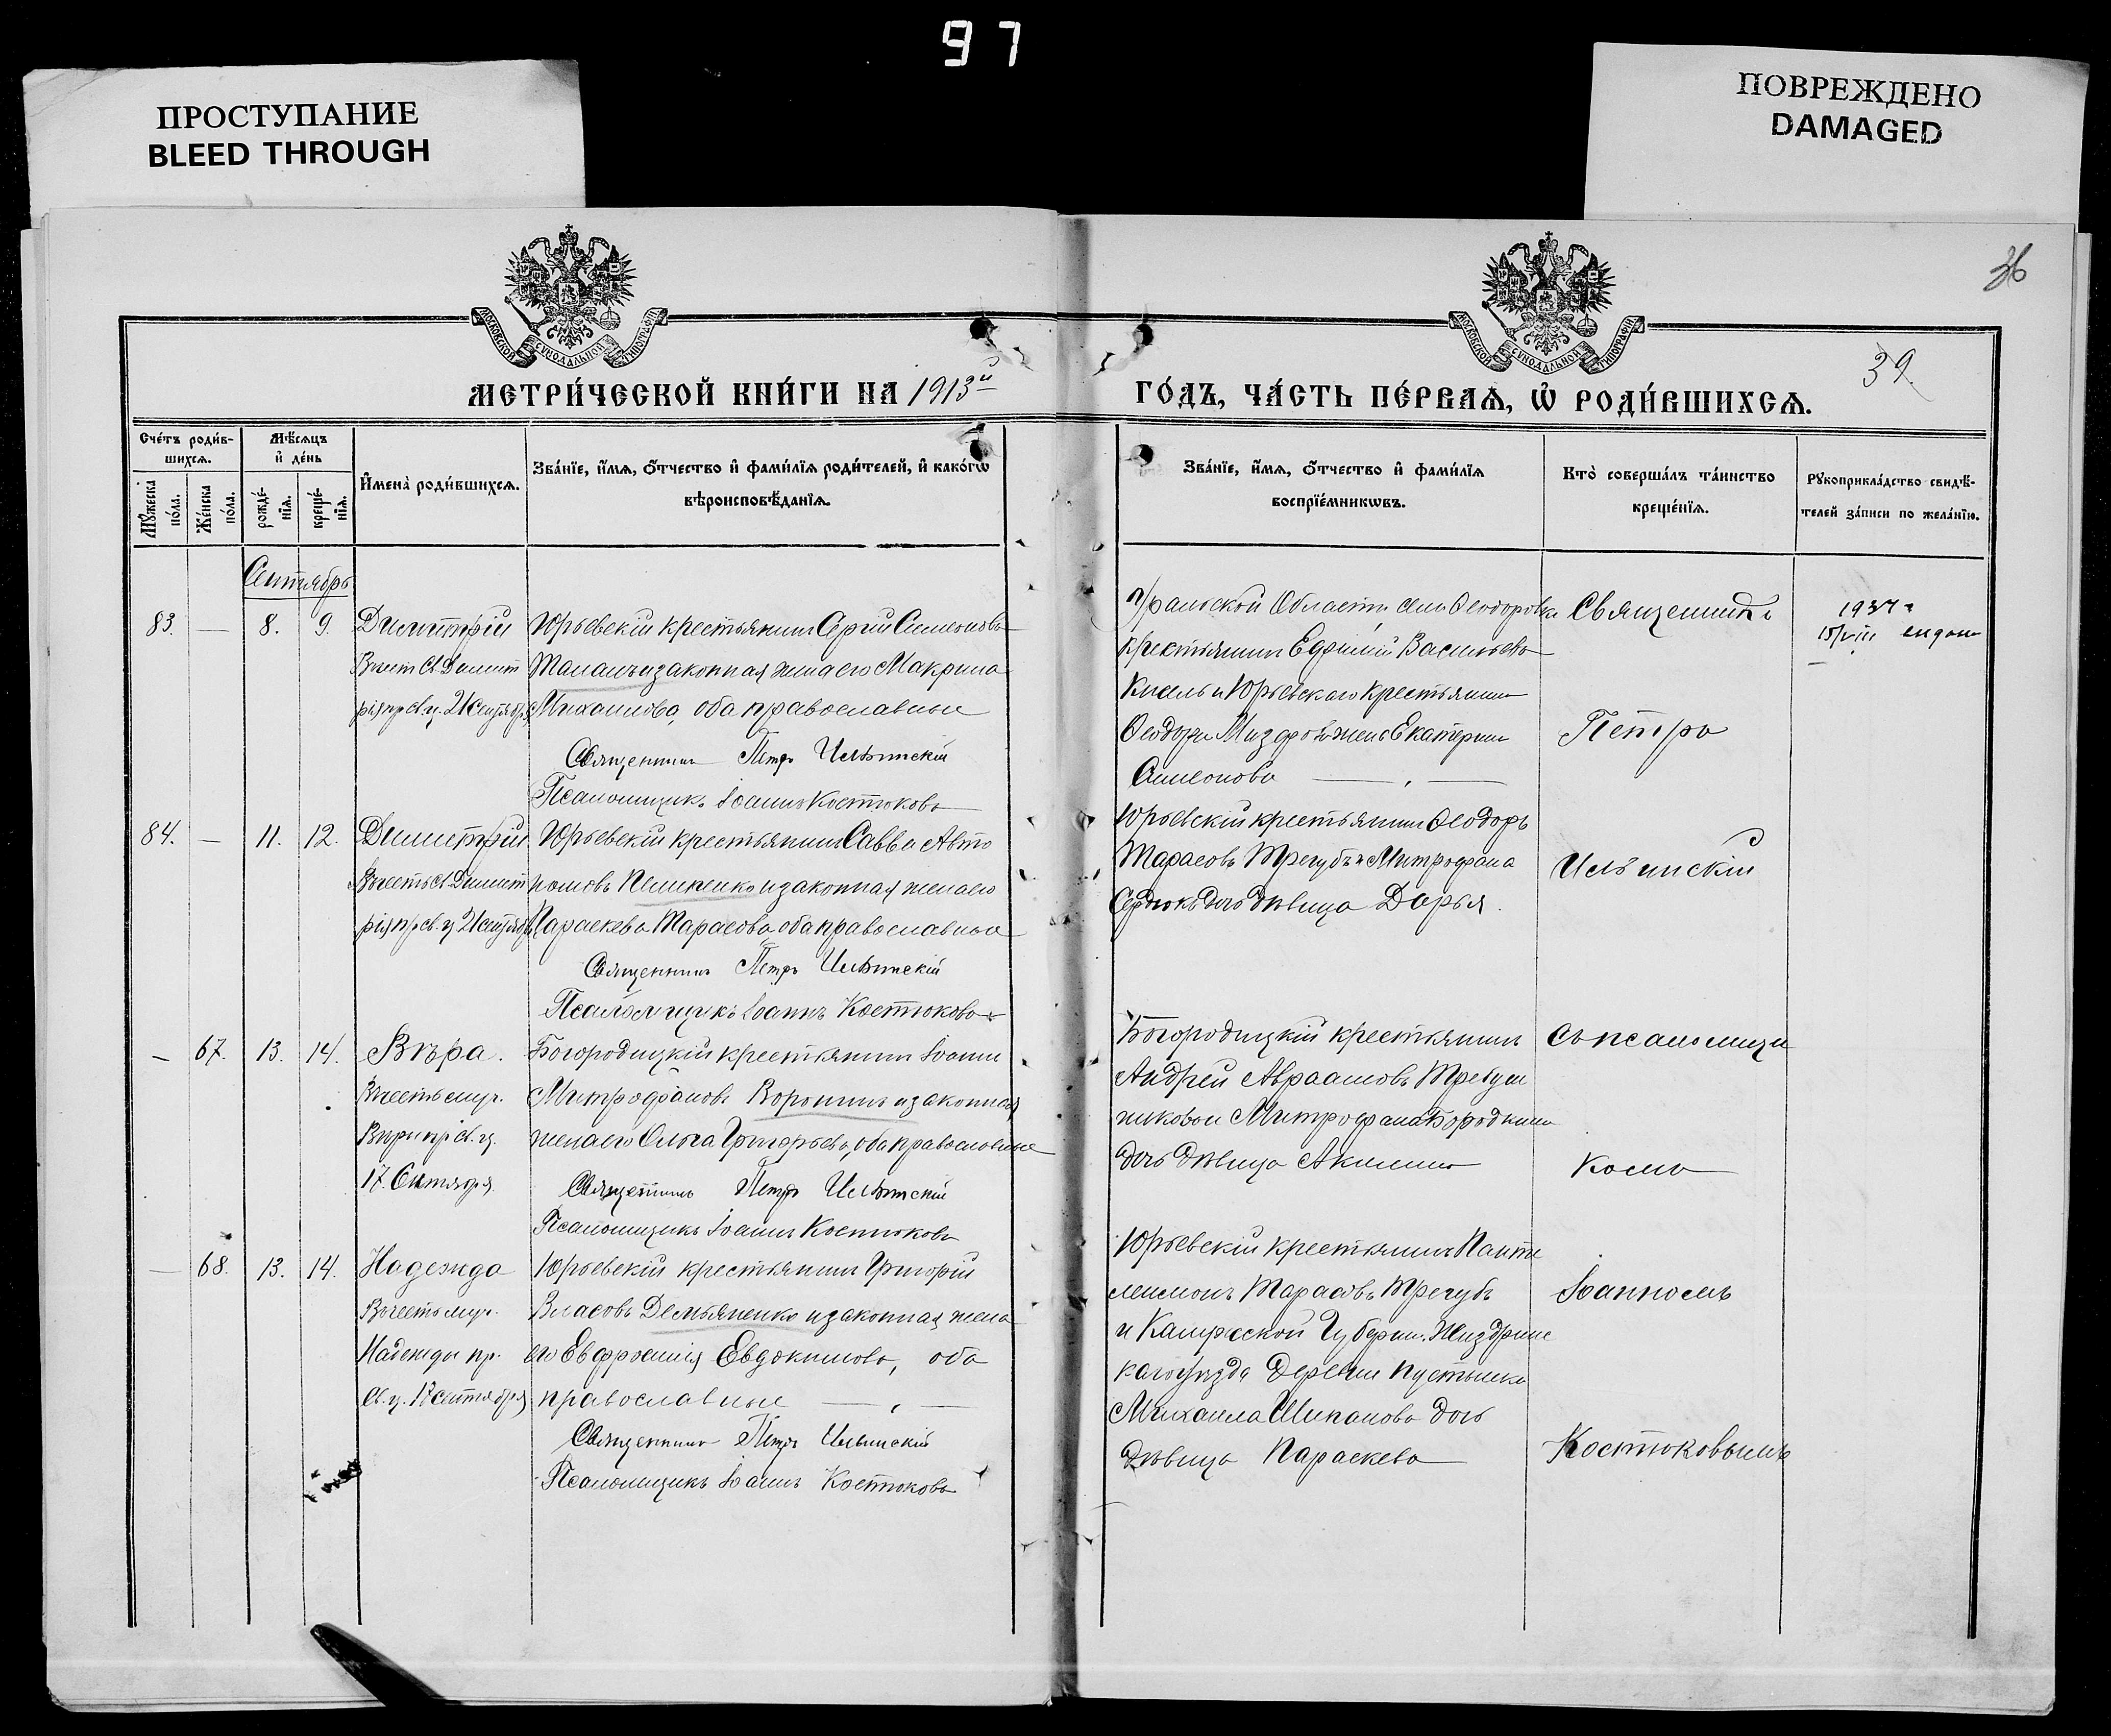 97
ПРОСТУПАНИЕ
BLEED THROUGH
ПОВРЕЖДЕНО
DAMAGED
36
39.
МОСКОВСКОЙ СѴНОДАЛЬНОЙ ТИПОГРАФІИ
МОСКОВСКОЙ СѴНОДАЛЬНОЙ ТИПОГРАФІИ
МЕТРИ́ЧЕСКОЙ КНИ́ГИ НА 1913й
ГО́ДЪ, ЧА́СТЬ ПЕ́РВАѦ, Ѡ҆ РОДИ́ВШИХСѦ.
Сче́тъ роди́в-
шихсѧ.
Мѣ́сѧцъ
и҆ де́нь
Мꙋ́жеска
по́ла.
Же́нска
по́ла.
рожде́-
нїѧ.
креще́-
нїѧ.
И҆мена̀ роди́вшихсѧ.
Зва́нїе, и҆́мѧ, ѻ҆́тчество и҆ фами́лїѧ роди́телей, и҆ како́гѡ
вѣроисповѣ́данїѧ.
Зва́нїе, и҆́мѧ, ѻ҆́тчество и҆ фами́лїѧ
воспрїе́мникѡвъ.
Кто̀ соверша́лъ та́инство
креще́нїѧ.
Рꙋкоприкла́дство свидѣ́-
телей за́писи по жела́нїю.
Сентябрь
83. — 8. 9. Димитрій
Въ честь Св. Димит
рія пр. св. ц. 21 Сентября
Юрьевскій крестьянинъ Сергій Симеоновъ
и законная жена его Макрина
Михаилова, оба православные
Священникъ Петръ Ильинскій
Псаломщикъ Іоаннъ Костюковъ
Уральской Области села Ѳеодоровки
крестьянинъ Ефимій Васильевъ
Кисель и Юрьевскаго крестьянина
Ѳеодора жена Екатерина
Симеонова
Священникъ
Петръ
1937 г
15/VIII
84. — 11. 12. Димитрій
Въ честь Св. Димит
рія пр. св. ц. 21 Сентября
Юрьевскій крестьянинъ Савва Авто
номовъ и законная жена его
Параскева Тарасова, оба православные
Священникъ Петръ Ильинскій
Псаломщикъ Іоаннъ Костюковъ
Юрьевскій крестьянинъ Ѳеодоръ
Тарасовъ Трегубъ и Митрофана
Сердюкъ дочь дѣвица Дарья.
Ильинскій
— 67. 13. 14. Вѣра.
Въ честь муч.
Вѣры пр. св. ц.
17 Сентября.
Богородицкій крестьянинъ Іоаннъ
Митрофановъ Воронинъ и законная
жена его Ольга Григорьева, оба православные
Священникъ Петръ Ильинскій
Псаломщикъ Іоаннъ Костюковъ
Богородицкій крестьянинъ
Андрей Авраамовъ
Митрофана Бородкина
дочь дѣвица Акилина
Съ псаломщи
комъ
— 68. 13. 14. Надежда
Въ честь муч.
Надежды пр.
св. ц. 17 Сентября
Юрьевскій крестьянинъ Григорій
Власовъ Демьяненко и законная жена
его Евфросинія Евдокимова, оба
православные
Священникъ Петръ Ильинскій
Псаломщикъ Іоаннъ Костюковъ
Юрьевскій крестьянинъ Панте
леимонъ Тарасовъ Трегубъ
и Калужской Губерніи. Жиздрин
скаго уѣзда деревни
Михаила дочь
дѣвица Параскева
Іоанномъ
Костюковымъ